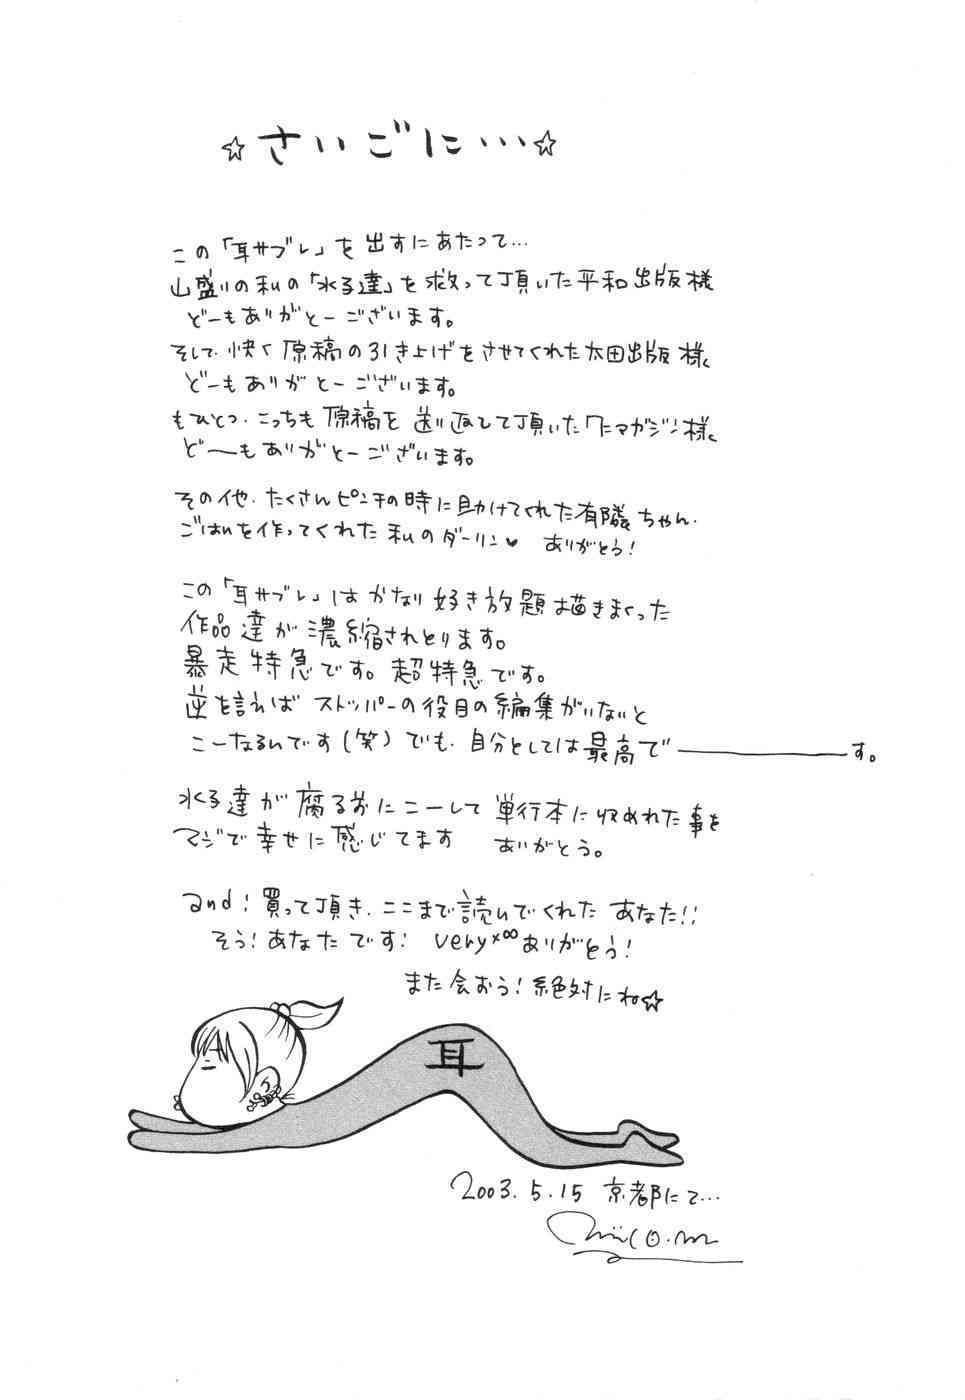 ☆さいごに…☆
この「耳サブレ」を出すにあたって…
山盛りの私の「水子達」を救って頂いた平和出版様
どーもありがとーございます。
そして、快く原稿の引き上げをさせてくれた太田出版様、
どーもありがとーございます。
もひとつ、こっちも原稿を送り返して頂いたワニマガジン様、
ど──もありがとーございます。
その他、たくさんピンチの時に助けてくれた有隣ちゃん、
ごはんを作ってくれた私のダーリン♥ ありがとう!
この「耳サブレ」はかなり好き放題描きまくった
作品達が濃縮されとります。
暴走特急です。超特急です。
逆を言えばストッパーの役目の編集がいないと
こーなるんです(笑)でも、自分としては最高で──────す。
水子達が腐る前にこーして単行本に収めれた事を
マジで幸せに感じてます ありがとう。
and! 買って頂き、ここまで読んでくれたあなた!!
そう!あなたです! very×∞ありがとう!
また会おう!絶対にね☆
耳
2003.5.15 京都にて…